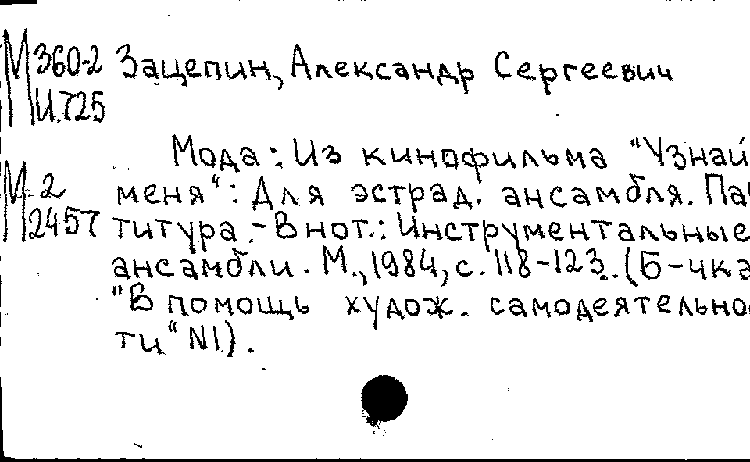 М 360-2 Зацепин, Александр Сергеевич
И.725
Мода : Из кинофильма "Узнай
М 2 меня" : Для эстрад. ансамбля. Пар
2457 титура. - В нот.: Инструментальные
ансамбли. М., 1984, с. 118-123. (Б-чка
"В помощь худож. самодеятельнос
ти" N1).